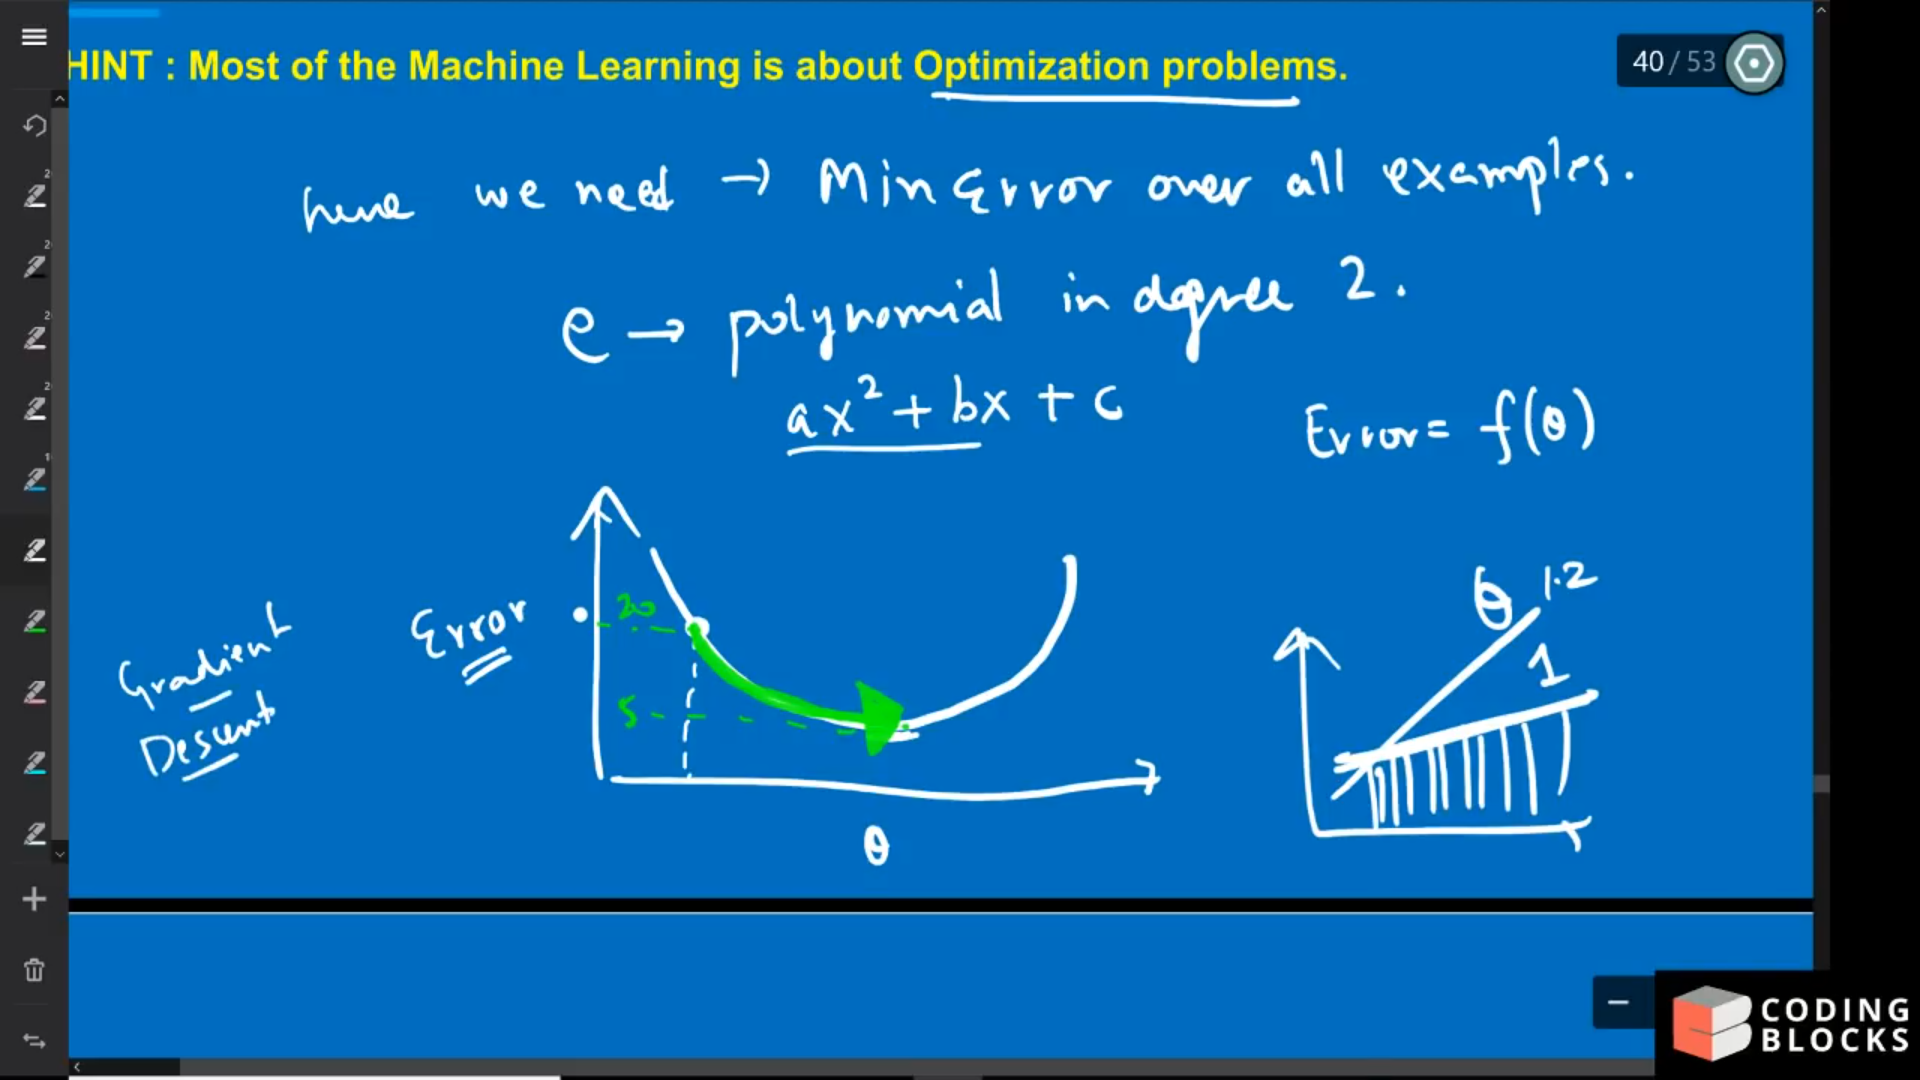 HINT : Most of the Machine Learning is about Optimization problems.
40 / 53
here we need → Min Error over all examples.
e → polynomial in degree 2.
ax² + bx + c
Error = f(θ)
Gradient
Descent
Error
20
5
θ
θ 1.2
1
CODING
BLOCKS